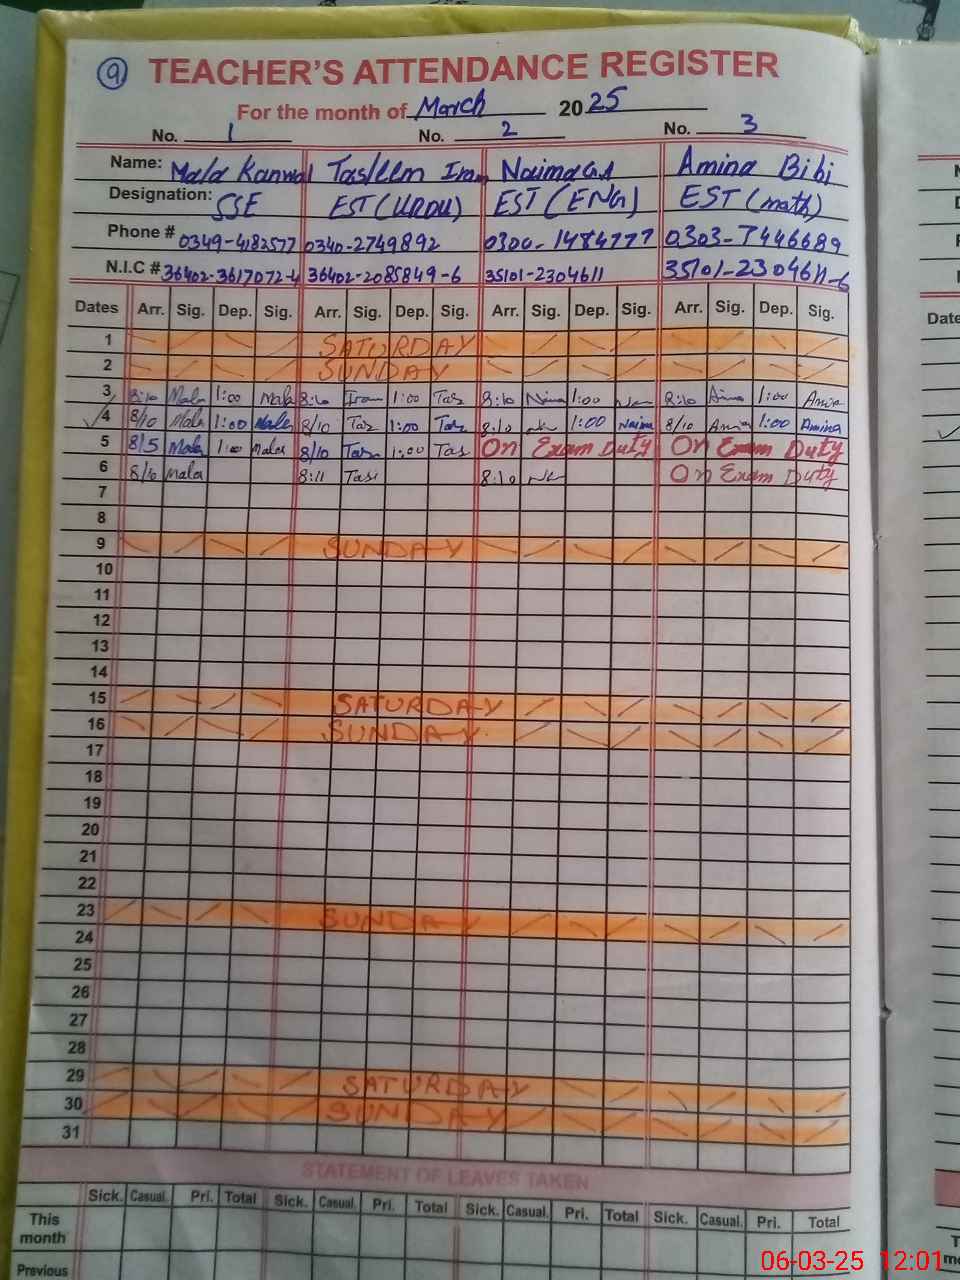 9 TEACHER'S ATTENDANCE REGISTER
For the month of March 2025
No. 1 No. 2 No. 3
Name: Mala Kanwal Tasleem Iram Naima Gul Amina Bibi
Designation: SSE EST (URDU) EST (ENG) EST (math)
Phone # 0349-4182577 0340-2749892 0300-1484777 0303-7446689
N.I.C # 36402-3617072-4 36402-2085849-6 35101-2304611 35101-2304611-6
Dates Arr. Sig. Dep. Sig. Arr. Sig. Dep. Sig. Arr. Sig. Dep. Sig. Arr. Sig. Dep. Sig.
1 SATURDAY
2 SUNDAY
3 8:10 Mala 1:00 Mala 8:10 Iram 1:00 Tas 8:10 Naima 1:00 8:10 Amina 1:00 Amin
4 8/10 Mala 1:00 Mala 8/10 Tas 1:00 Tas 8:10 1:00 Naima 8/10 Amina 1:00 Amina
5 8/5 Mala 1:00 Mala 8/10 Tas 1:00 Tas On Exam Duty On Exam Duty
6 8/10 Mala 8:11 Tasi 8:10 On Exam Duty
7
8
9 SUNDAY
10
11
12
13
14
15 SATURDAY
16 SUNDAY
17
18
19
20
21
22
23 SUNDAY
24
25
26
27
28
29 SATURDAY
30 SUNDAY
31
STATEMENT OF LEAVES TAKEN
Sick. Casual. Pri. Total Sick. Casual. Pri. Total Sick. Casual. Pri. Total Sick. Casual. Pri. Total
This month
Previous
Date
06-03-25 12:01